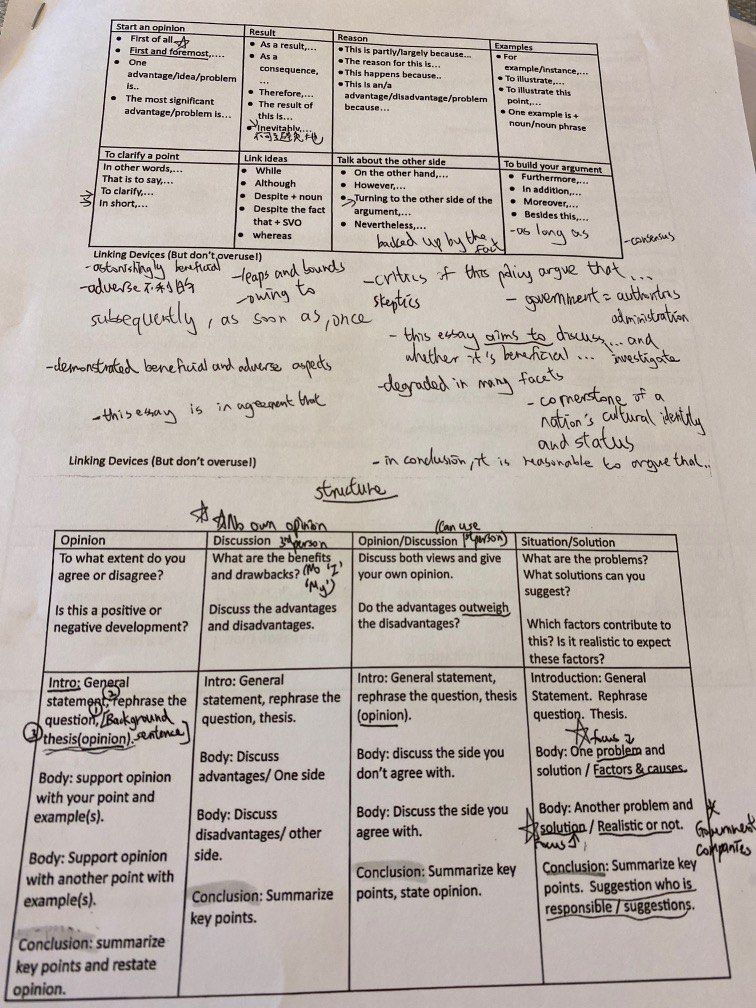 Start an opinion
• First of all
• First and foremost,....
• One
advantage/idea/problem
is..
• The most significant
advantage/problem is...
Result
• As a result,...
• As a
consequence,
...
• Therefore,...
• The result of
this is...
• Inevitably,...
Reason
• This is partly/largely because...
• The reason for this is...
• This happens because..
• This is an/a
advantage/disadvantage/problem
because...
Examples
• For
example/instance,...
• To illustrate,...
• To illustrate this
point,...
• One example is +
noun/noun phrase
To clarify a point
In other words,...
That is to say,...
To clarify,...
In short,...
Link Ideas
• While
• Although
• Despite + noun
• Despite the fact
that + SVO
• whereas
Talk about the other side
• On the other hand,...
• However,...
• Turning to the other side of the
argument,...
• Nevertheless,...
backed up by the
fact
To build your argument
• Furthermore,...
• In addition,...
• Moreover,...
• Besides this,...
-as long as
-consensus
Linking Devices (But don't overuse!)
-astonishingly beneficial
-adverse 不利的
-leaps and bounds
-owing to
subsequently, as soon as, once
-critics of this policy argue that ...
skeptics
- government = authorities
administration
- this essay aims to discuss... and
whether it's beneficial ... investigate
-demonstrated beneficial and adverse aspects
-degraded in many facets
-this essay is in agreement that
- cornerstone of a
nation's cultural identity
and status
Linking Devices (But don't overuse!)
- in conclusion, it is reasonable to argue that..
structure
No own opinion
3rd person
(Can use
1st person)
Opinion
To what extent do you
agree or disagree?
Is this a positive or
negative development?
Discussion
What are the benefits
and drawbacks? (No 'I'
'My')
Discuss the advantages
and disadvantages.
Opinion/Discussion
Discuss both views and give
your own opinion.
Do the advantages outweigh
the disadvantages?
Situation/Solution
What are the problems?
What solutions can you
suggest?
Which factors contribute to
this? Is it realistic to expect
these factors?
Intro: General
statement, rephrase the
question, [Background
thesis(opinion). sentence]
1
2
3
Body: support opinion
with your point and
example(s).
Body: Support opinion
with another point with
example(s).
Conclusion: summarize
key points and restate
opinion.
Intro: General
statement, rephrase the
question, thesis.
Body: Discuss
advantages/ One side
Body: Discuss
disadvantages/ other
side.
Conclusion: Summarize
key points.
Intro: General statement,
rephrase the question, thesis
(opinion).
Body: discuss the side you
don't agree with.
Body: Discuss the side you
agree with.
Conclusion: Summarize key
points, state opinion.
Introduction: General
Statement. Rephrase
question. Thesis.
focus
Body: One problem and
solution / Factors & causes.
Body: Another problem and
solution / Realistic or not.
focus
Government
Companies
Conclusion: Summarize key
points. Suggestion who is
responsible / suggestions.